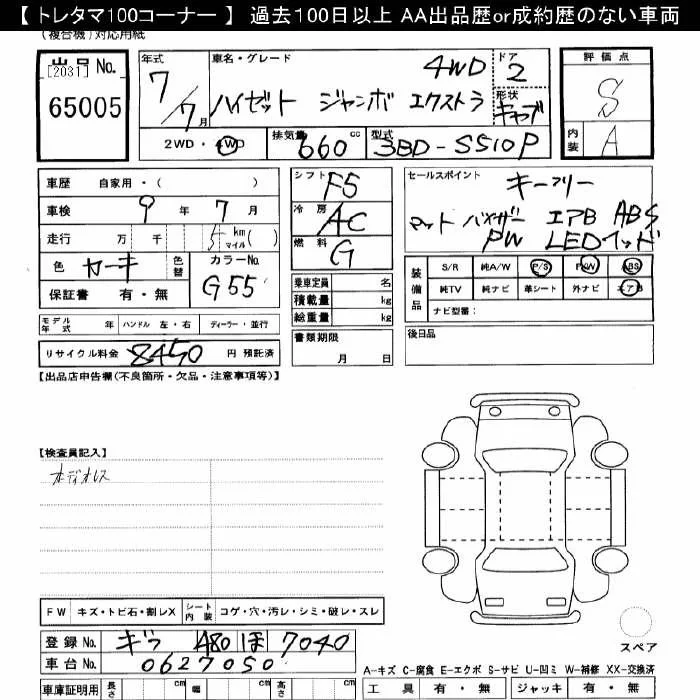 【 トレタマ100コーナー 】 過去100日以上 AA出品歴or成約歴のない車両
(複合機)対応用紙
出品 No.
[2031]
65005
年式
7/7月
車名・グレード
4WD
ハイゼット ジャンボ エクストラ
ドア
2
形状
キャブ
評価点
S
内装
A
2WD・4WD
排気量
660 cc
型式
3BD-S510P
車歴 自家用・( )
車検 9 年 7 月
走行 万 千 5 km マイル ( )
色 カーキ 色替
カラーNo.
G55
保証書 有・無
シフト
F5
冷房
AC
燃料
G
乗車定員 名
積載量 kg
総重量 kg
セールスポイント
キーフリー
マット バイザー エアB ABS
PW LEDヘッド
装備品
S/R 純A/W P/S P/W ABS
純TV 純ナビ 革シート 外ナビ エアB
ナビ型番:
モデル年式 年 ハンドル 左・右 ディーラー・並行
リサイクル料金 8450 円 預託済
書類期限
月 日
後日品
【出品店申告欄(不良箇所・欠品・注意事項等)】
【検査員記入】
オーディオレス
FW キズ・トビ石・割レX シート内装 コゲ・穴・汚レ・シミ・破レ・スレ
登録 No. 480 ほ 7040
車台 No. 0627050
車庫証明用 長さ cm 幅 cm 高さ cm
スペア
A-キズ C-腐食 E-エクボ S-サビ U-凹ミ W-補修 XX-交換済
工具 有・無 ジャッキ 有・無